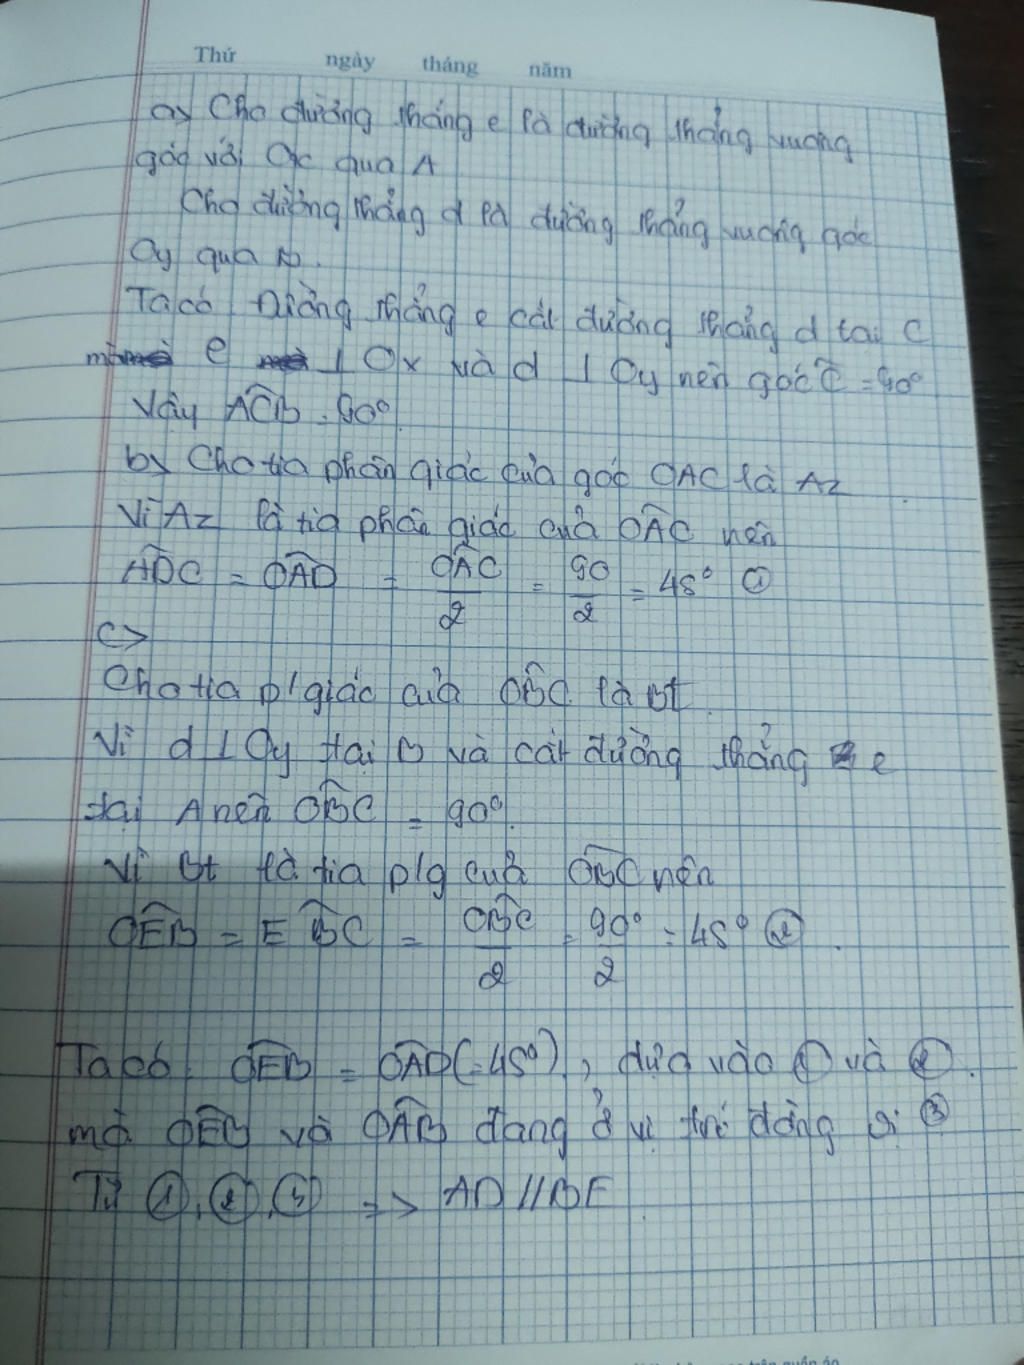 Thứ ngày tháng năm
a> Cho đường thẳng e là đường thẳng vuông
góc với Ox qua A
Cho đường thẳng d là đường thẳng vuông góc
Oy qua B.
Ta có Đường thẳng e cắt đường thẳng d tại C
mà e ⊥ Ox và d ⊥ Oy nên góc Ĉ = 90°
Vậy ACB = 90°.
b> Cho tia phân giác của góc OAC là Az
Vì Az là tia phân giác của OAC nên
ADC = OAD = OAC/2 = 90/2 = 45° ①
c>
Cho tia p/giác của OBC là Bt.
Vì d ⊥ Oy tại B và cắt đường thẳng e
tại A nên OBC = 90°.
Vì Bt là tia p/g của OBC nên
OEB = EBC = OBC/2 = 90°/2 = 45° ②.
Ta có OEB = OAD (=45°), dựa vào ① và ②.
mà OEB và OAB đang ở vị trí đồng vị ③
Từ ①, ②, ③ => AD // BE.